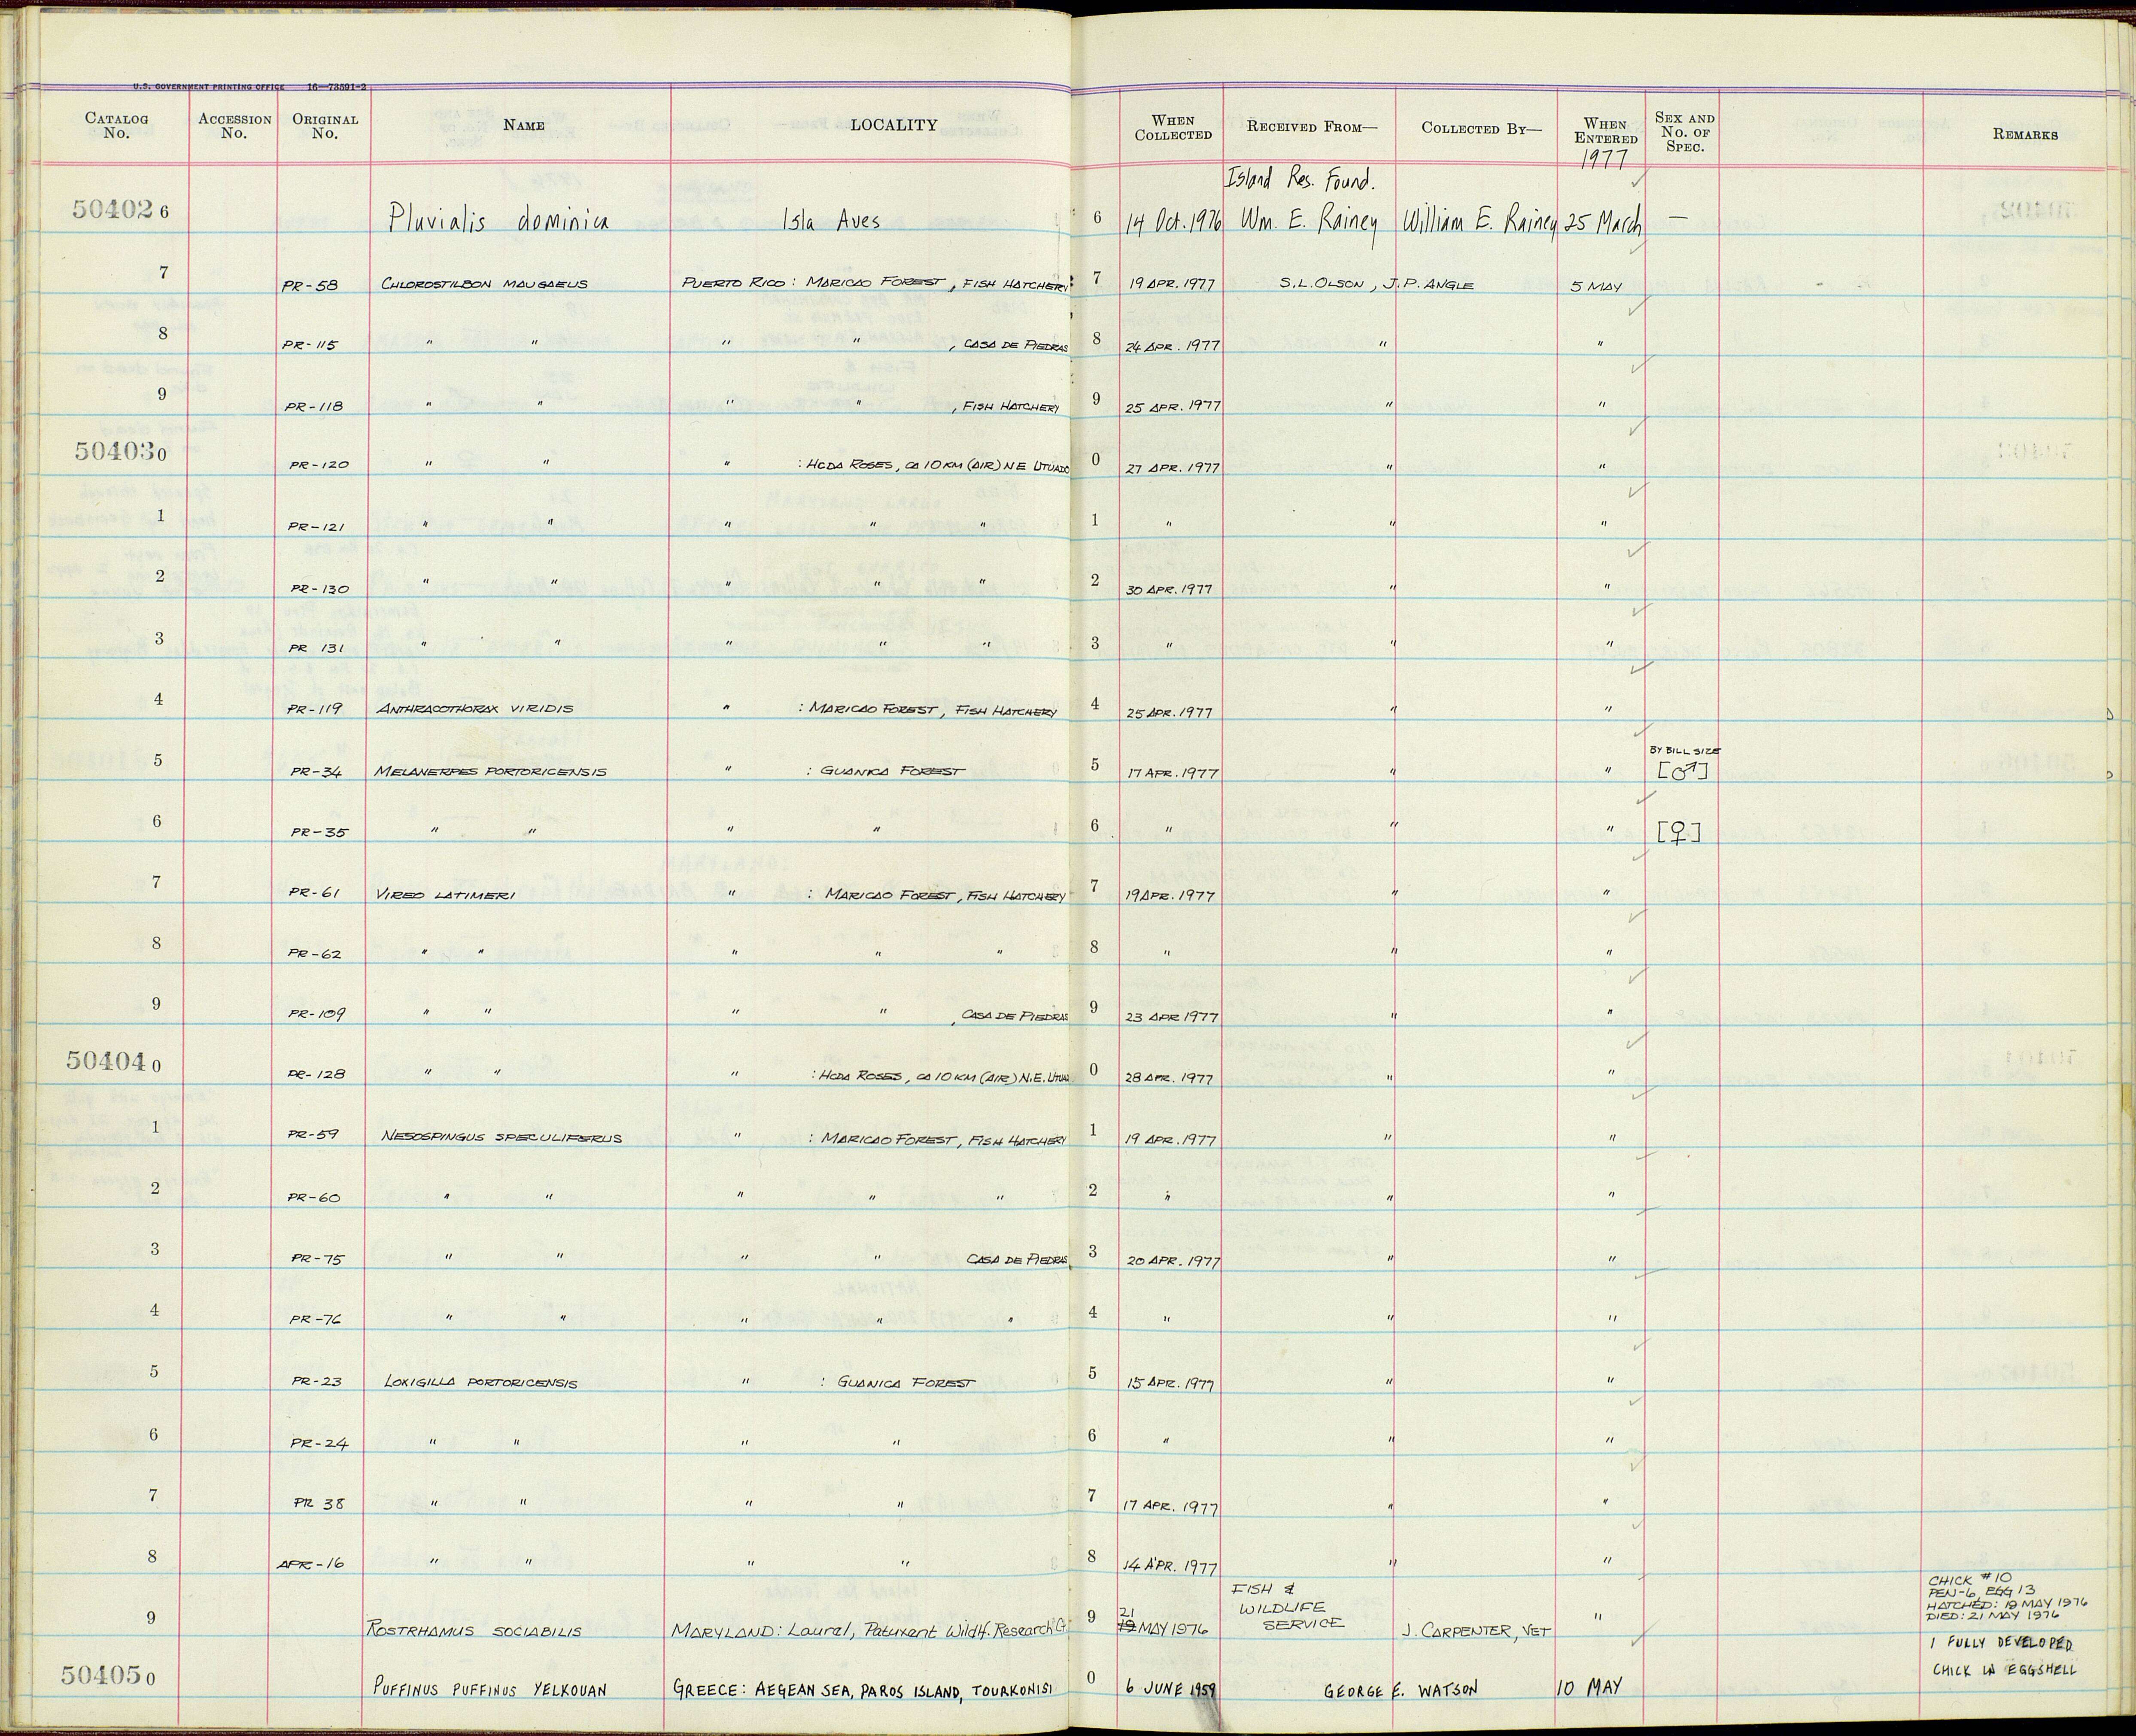 U.S. GOVERNMENT PRINTING OFFICE 16—73591-2
CATALOG No. ACCESSION No. ORIGINAL No. NAME LOCALITY WHEN COLLECTED RECEIVED FROM— COLLECTED BY— WHEN ENTERED SEX AND No. OF SPEC. REMARKS
1977
Island Res. Found.
504026 Pluvialis dominica Isla Aves 6 14 Oct. 1976 Wm. E. Rainey William E. Rainey 25 March —
7 PR-58 CHLOROSTILBON MAUGAEUS PUERTO RICO: MARICAO FOREST, FISH HATCHERY 7 19 APR. 1977 S.L. OLSON, J.P. ANGLE 5 MAY
8 PR-115 " " " " , CASA DE PIEDRAS 8 24 APR. 1977 " "
9 PR-118 " " " " , FISH HATCHERY 9 25 APR. 1977 " "
504030 PR-120 " " " : HCDA ROSES, CA 10 KM (AIR) NE UTUADO 0 27 APR. 1977 " "
1 PR-121 " " " " " 1 " " "
2 PR-130 " " " " " 2 30 APR. 1977 " "
3 PR 131 " " " " " 3 " " "
4 PR-119 ANTHRACOTHORAX VIRIDIS " : MARICAO FOREST, FISH HATCHERY 4 25 APR. 1977 " "
BY BILL SIZE
5 PR-34 MELANERPES PORTORICENSIS " : GUANICA FOREST 5 17 APR. 1977 " " [♂]
6 PR-35 " " " " 6 " " " [♀]
7 PR-61 VIREO LATIMERI " : MARICAO FOREST, FISH HATCHERY 7 19 APR. 1977 " "
8 PR-62 " " " " " 8 " " "
9 PR-109 " " " " , CASA DE PIEDRAS 9 23 APR 1977 " "
504040 PR-128 " " " : HCDA ROSES, CA 10 KM (AIR) N.E. UTUA 0 28 APR. 1977 " "
1 PR-59 NESOSPINGUS SPECULIFERUS " : MARICAO FOREST, FISH HATCHERY 1 19 APR. 1977 " "
2 PR-60 " " " " " 2 " " "
3 PR-75 " " " " CASA DE PIEDRAS 3 20 APR. 1977 " "
4 PR-76 " " " " " 4 " " "
5 PR-23 LOXIGILLA PORTORICENSIS " : GUANICA FOREST 5 15 APR. 1977 " "
6 PR-24 " " " " 6 " " "
7 PR 38 " " " " 7 17 APR. 1977 " "
8 APR-16 " " " " 8 14 APR. 1977 " "
FISH & WILDLIFE SERVICE
CHICK #10
PEN-6, EGG 13
HATCHED: 19 MAY 1976
DIED: 21 MAY 1976
21
9 ROSTRHAMUS SOCIABILIS MARYLAND: Laurel, Patuxent Wildlf. Research Ct. 9 19 MAY 1976 J. CARPENTER, VET "
1 FULLY DEVELOPED
CHICK IN EGGSHELL
504050 PUFFINUS PUFFINUS YELKOUAN GREECE: AEGEAN SEA, PAROS ISLAND, TOURKONISI 0 6 JUNE 1959 GEORGE E. WATSON 10 MAY